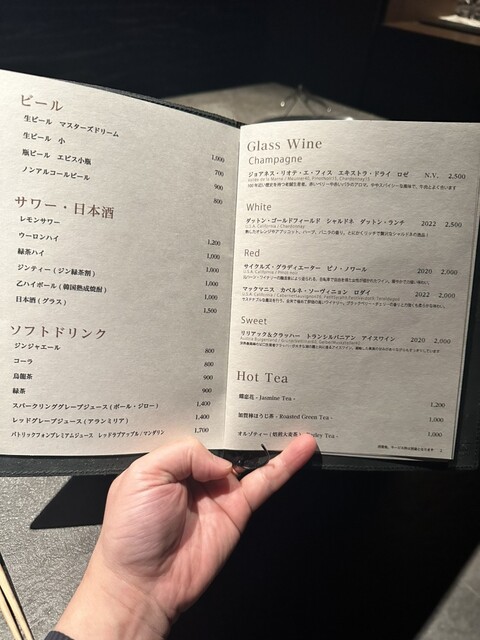 ビール
生ビール マスターズドリーム 1,000
生ビール 小 700
瓶ビール エビス小瓶 900
ノンアルコールビール 800
サワー・日本酒
レモンサワー 1,200
ウーロンハイ 1,000
緑茶ハイ 1,000
ジンティー(ジン緑茶割) 1,000
乙ハイボール(韓国熟成焼酎) 1,000
日本酒(グラス) 1,500
ソフトドリンク
ジンジャエール 800
コーラ 800
烏龍茶 900
緑茶 900
スパークリンググレープジュース(ポール・ジロー) 1,400
レッドグレープジュース(アランミリア) 1,400
パトリックフォンプレミアムジュース レッドラブアップル/マンダリン 1,700
Glass Wine
Champagne
ジョアネス・リオテ・エ・フィス エキストラ・ドライ ロゼ N.V. 2,500
White
ダットン・ゴールドフィールド シャルドネ ダットン・ランチ 2022 2,500
U.S.A. California / Chardonnay
Red
サイクルズ・グラディエーター ピノ・ノワール 2020 2,000
U.S.A. California / Pinot noir
マックマニス カベルネ・ソーヴィニョン ロダイ 2022 2,000
Sweet
リリアック&クラッハー トランシルバニアン アイスワイン 2020 2,000
Hot Tea
- Jasmine Tea - 1,200
加賀棒ほうじ茶 - Roasted Green Tea - 1,000
オルゾティー - 1,000